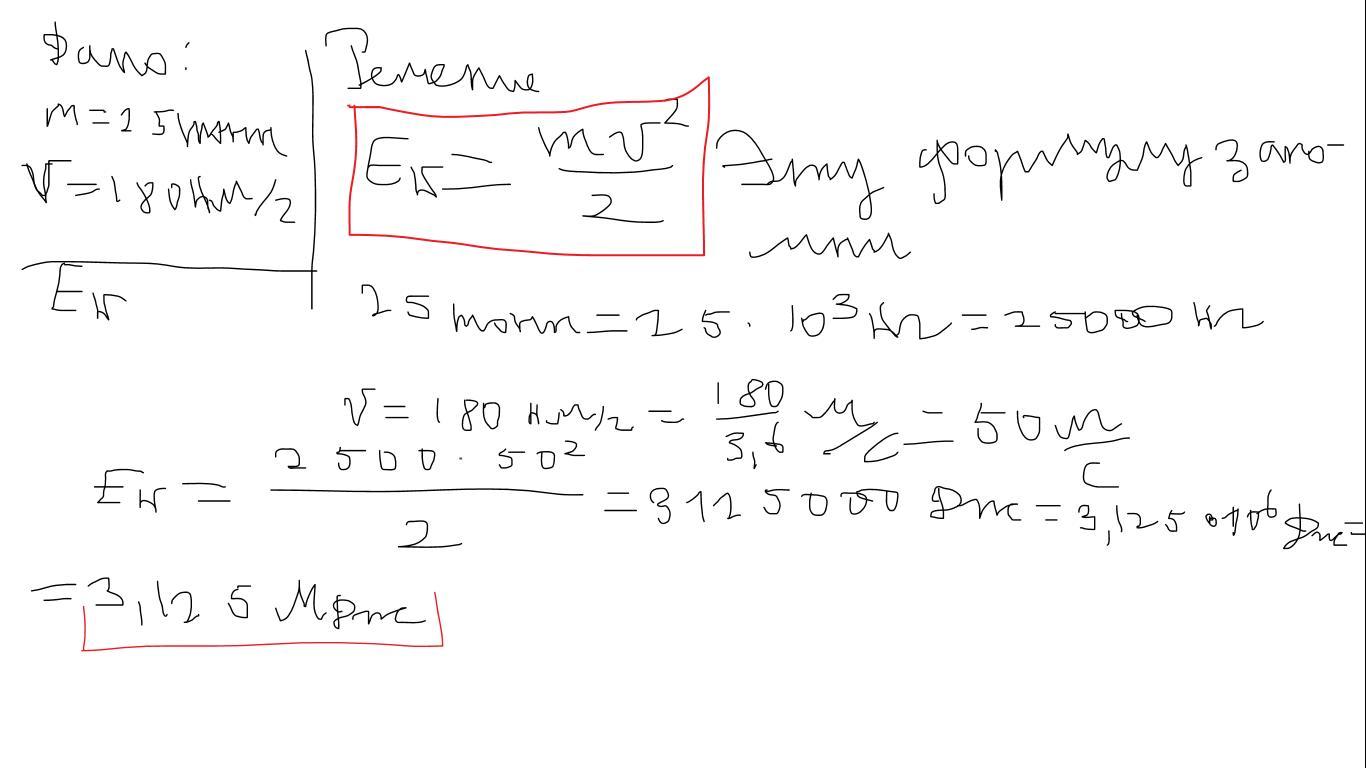 Дано:
m = 25 тонн
V = 180 км/г
Eк
Решение
Eк = mv²/2 Эту формулу запо-
мни
25 тонн = 25 · 10³ кг = 25000 кг
V = 180 км/г = 180/3,6 м/с = 50 м/с
Eк = 2500 · 50²/2 = 3125000 Дж = 3,125 · 10⁶ Дж =
= 3,125 МДж